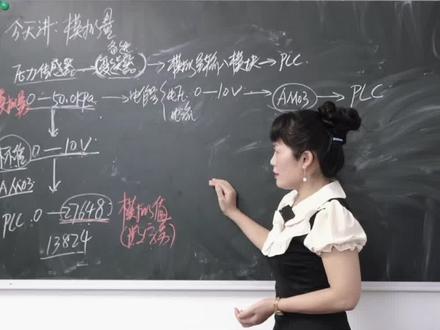 今天讲:模拟量
变送
压力传感器 → → 模拟量输入模块 → PLC
模拟量 0—50.0kPa → 电压 0—10V → AM03 → PLC
电流
标准 0—10V
AM03
PLC 0—27648 模拟值
13824